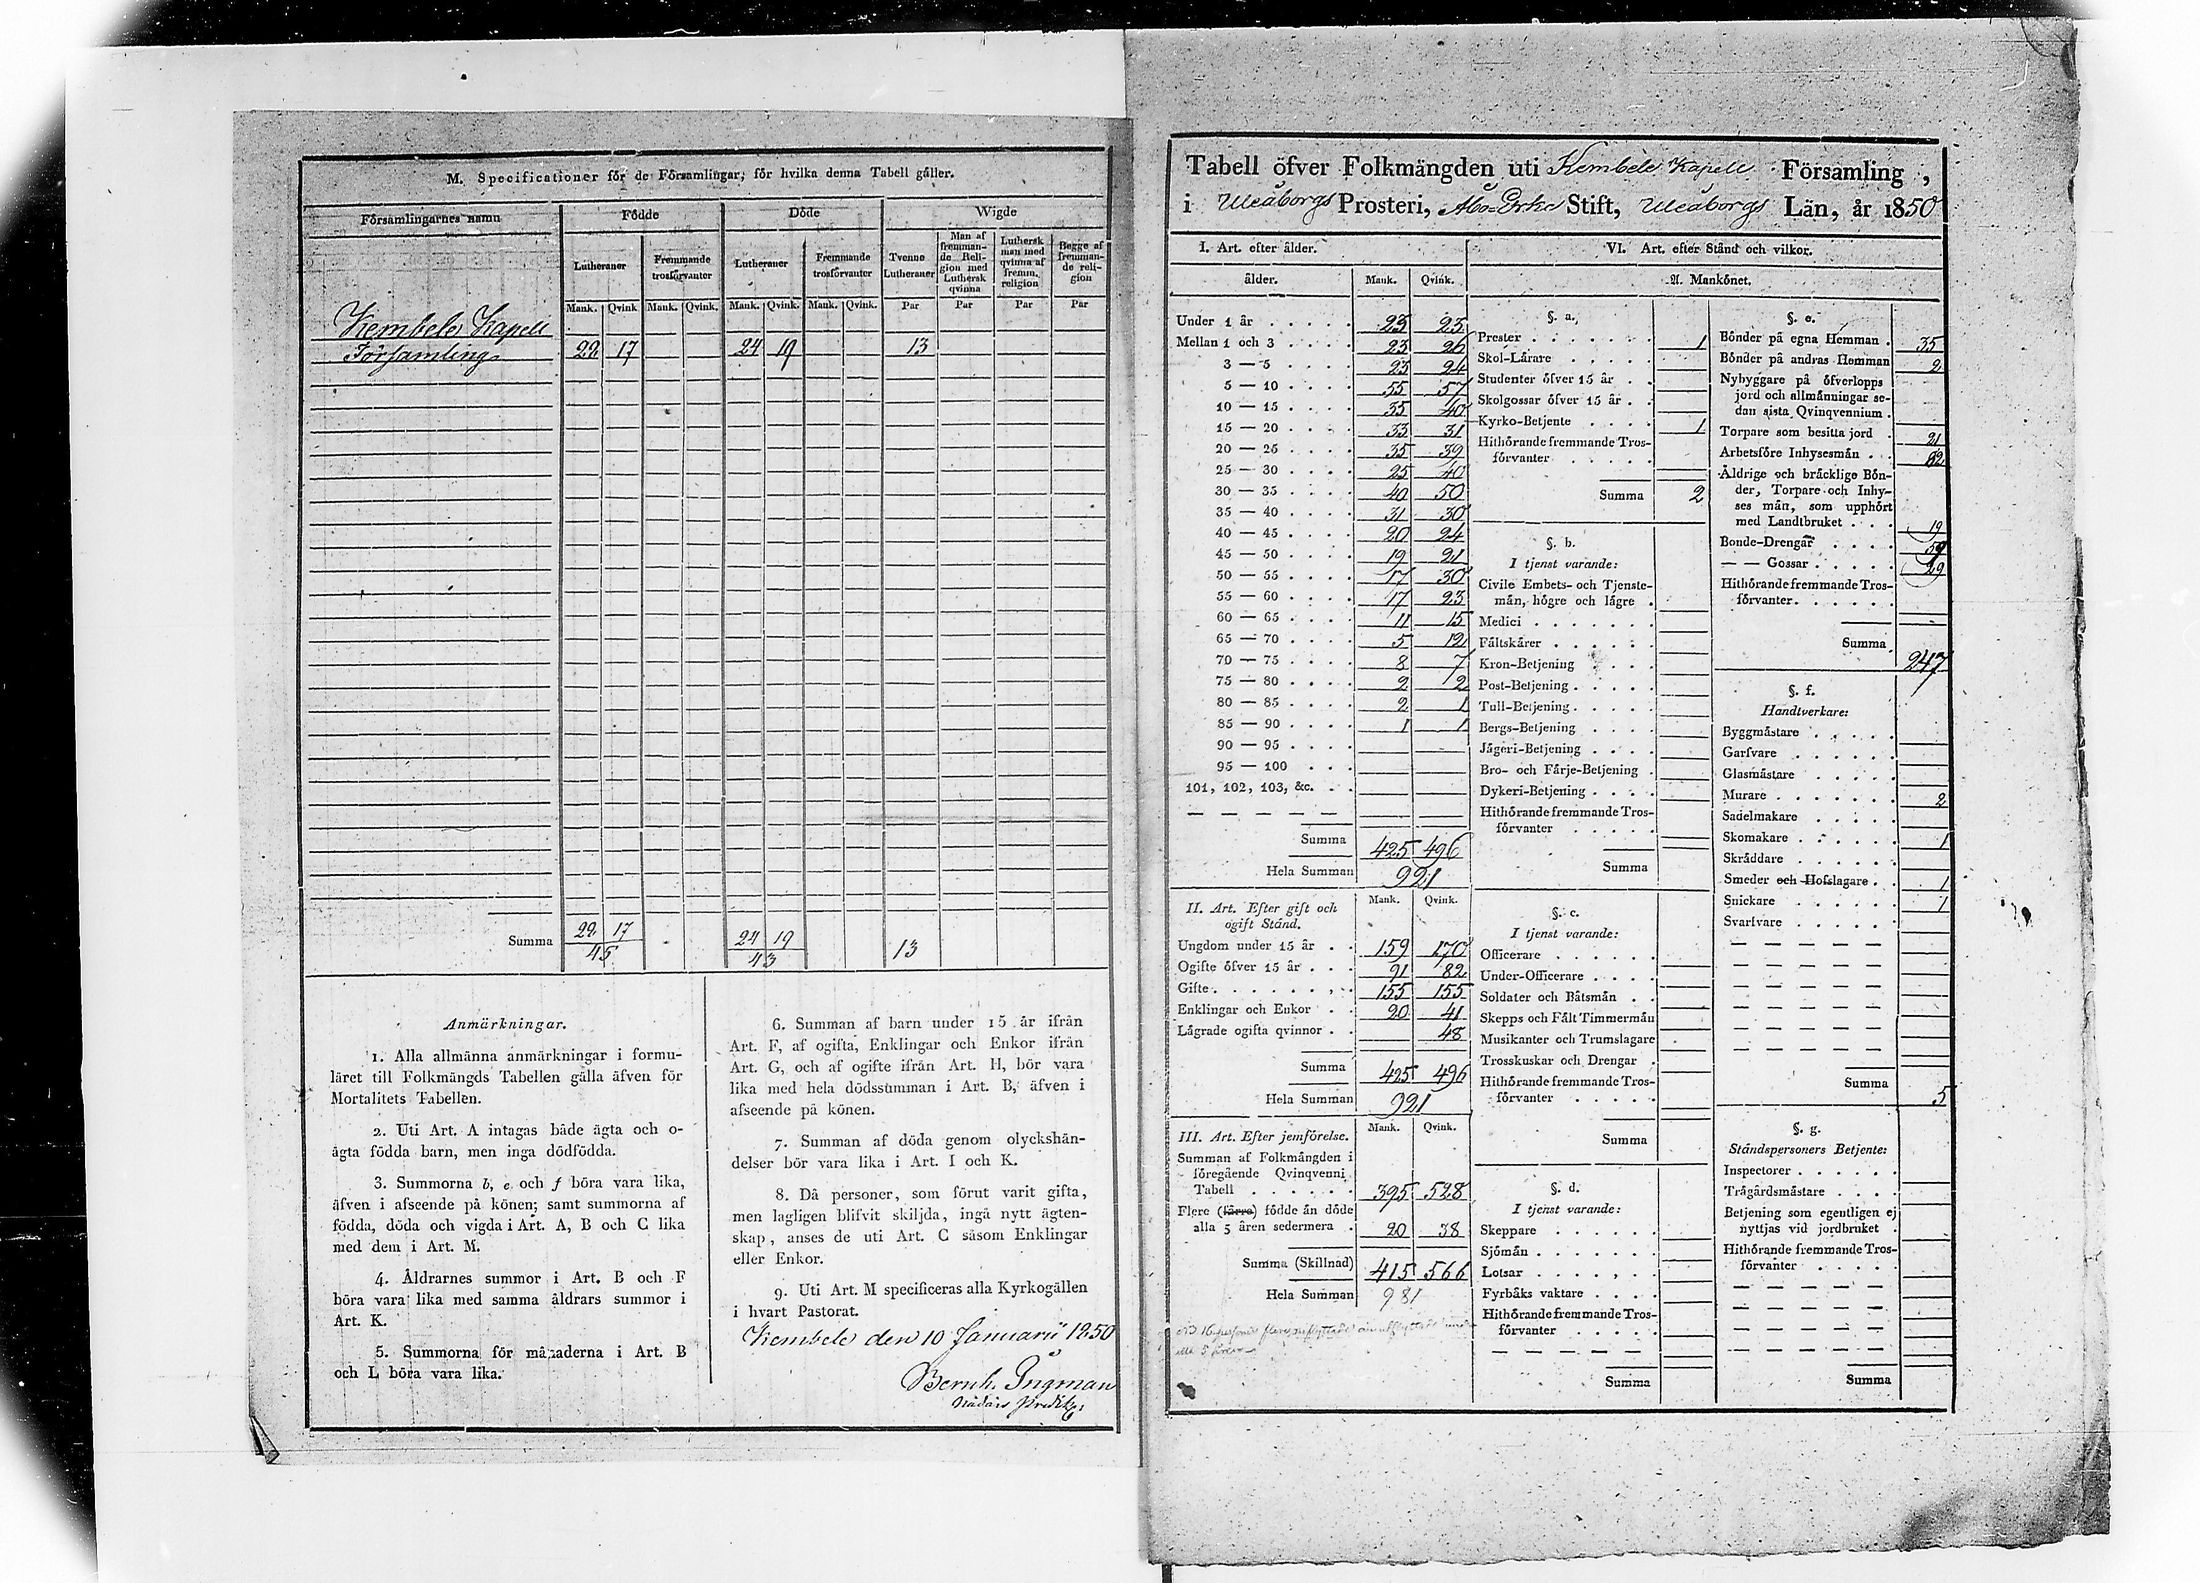 M. Specificationer för de Församlingar, för hvilka denna Tabell gäller.
Församlingarnes namn Födde Döde Wigde
Lutheraner Fremmande trosförvanter Lutheraner Fremmande trosförvanter Tvenne Lutheraner Man af fremmande Religion med Luthersk qvinna Luthersk man med qvinna af fremm. religion Begge af fremmande religion
Mank. Qvink. Mank. Qvink. Mank. Qvink. Mank. Qvink. Par Par Par Par
Kembele Kapell
Församling 22 17 24 19 13
Summa 22 17 24 19 13
45 43
Anmärkningar.
1. Alla allmänna anmärkningar i formu-
läret till Folkmängds Tabellen gälla äfven för
Mortalitets Tabellen.
2. Uti Art. A intagas både ägta och o-
ägta födda barn, men inga dödfödda.
3. Summorna b, e och f böra vara lika,
äfven i afseende på könen; samt summorna af
födda, döda och vigda i Art. A, B och C lika
med dem i Art. M.
4. Åldrarnes summor i Art. B och F
böra vara lika med samma åldrars summor i
Art. K.
5. Summorna för månaderna i Art. B
och L böra vara lika.
6. Summan af barn under 15 år ifrån
Art. F, af ogifta, Enklingar och Enkor ifrån
Art. G, och af ogifte ifrån Art. H, bör vara
lika med hela dödssumman i Art. B, äfven i
afseende på könen.
7. Summan af döda genom olyckshän-
delser bör vara lika i Art. I och K.
8. Då personer, som förut varit gifta,
men lagligen blifvit skiljda, ingå nytt ägten-
skap, anses de uti Art. C såsom Enklingar
eller Enkor.
9. Uti Art. M specificeras alla Kyrkogällen
i hvart Pastorat.
Kembele den 10 Januarii 1850
Bernh. Ingman
Nådårs Predik.
Tabell öfver Folkmängden uti Kembele Kapell Församling,
i Uleåborgs Prosteri, Åbo Erke Stift, Uleåborgs Län, år 1850
I. Art. efter ålder.
ålder. Mank. Qvink.
Under 1 år 23 25
Mellan 1 och 3 23 26
3 — 5 23 24
5 — 10 55 57
10 — 15 35 40
15 — 20 33 31
20 — 25 35 39
25 — 30 25 40
30 — 35 40 50
35 — 40 31 30
40 — 45 20 24
45 — 50 19 21
50 — 55 17 30
55 — 60 17 23
60 — 65 11 15
65 — 70 5 12
70 — 75 8 7
75 — 80 2 2
80 — 85 2 1
85 — 90 1 1
90 — 95
95 — 100
101, 102, 103, &c.
Summa 425 496
Hela Summan 921
II. Art. Efter gift och
ogift Stånd. Mank. Qvink.
Ungdom under 15 år 159 170
Ogifte öfver 15 år 91 82
Gifte 155 155
Enklingar och Enkor 20 41
Lägrade ogifta qvinnor 48
Summa 425 496
Hela Summan 921
III. Art. Efter jemförelse. Mank. Qvink.
Summan af Folkmängden i
föregående Qvinqvenni
Tabell 395 528
Flere (färre) födde än döde
alla 5 åren sedermera 20 38
Summa (Skillnad) 415 566
Hela Summan 981
VI. Art. efter Stånd och vilkor.
A. Mankönet.
§. a.
Prester 1
Skol-Lärare
Studenter öfver 15 år
Skolgossar öfver 15 år
Kyrko-Betjente 1
Hithörande fremmande Tros-
förvanter
Summa 2
§. b.
I tjenst varande:
Civile Embets- och Tjenste-
män, högre och lägre
Medici
Fältskärer
Kron-Betjening
Post-Betjening
Tull-Betjening
Bergs-Betjening
Jägeri-Betjening
Bro- och Färje-Betjening
Dykeri-Betjening
Hithörande fremmande Tros-
förvanter
Summa
§. c.
I tjenst varande:
Officerare
Under-Officerare
Soldater och Båtsmän
Skepps och Fält Timmermän
Musikanter och Trumslagare
Trosskuskar och Drengar
Hithörande fremmande Tros-
förvanter
Summa
§. d.
I tjenst varande:
Skeppare
Sjömän
Lotsar
Fyrbåks vaktare
Hithörande fremmande Tros-
förvanter
Summa
§. e.
Bönder på egna Hemman 35
Bönder på andras Hemman 2
Nybyggare på öfverlopps
jord och allmänningar se-
dan sista Qvinqvennium
Torpare som besitta jord 21
Arbetsföre Inhysesmän 82
Åldrige och bräcklige Bön-
der, Torpare och Inhy-
ses män, som upphört
med Landtbruket 19
Bonde-Drengar 59
— — Gossar 29
Hithörande fremmande Tros-
förvanter
Summa 247
§. f.
Handtverkare:
Byggmästare
Garfvare
Glasmästare
Murare 2
Sadelmakare
Skomakare 1
Skräddare
Smeder och Hofslagare 1
Snickare 1
Svarfvare
Summa 5
§. g.
Ståndspersoners Betjente:
Inspectorer
Trägårdsmästare
Betjening som egentligen ej
nyttjas vid jordbruket
Hithörande fremmande Tros-
förvanter
Summa